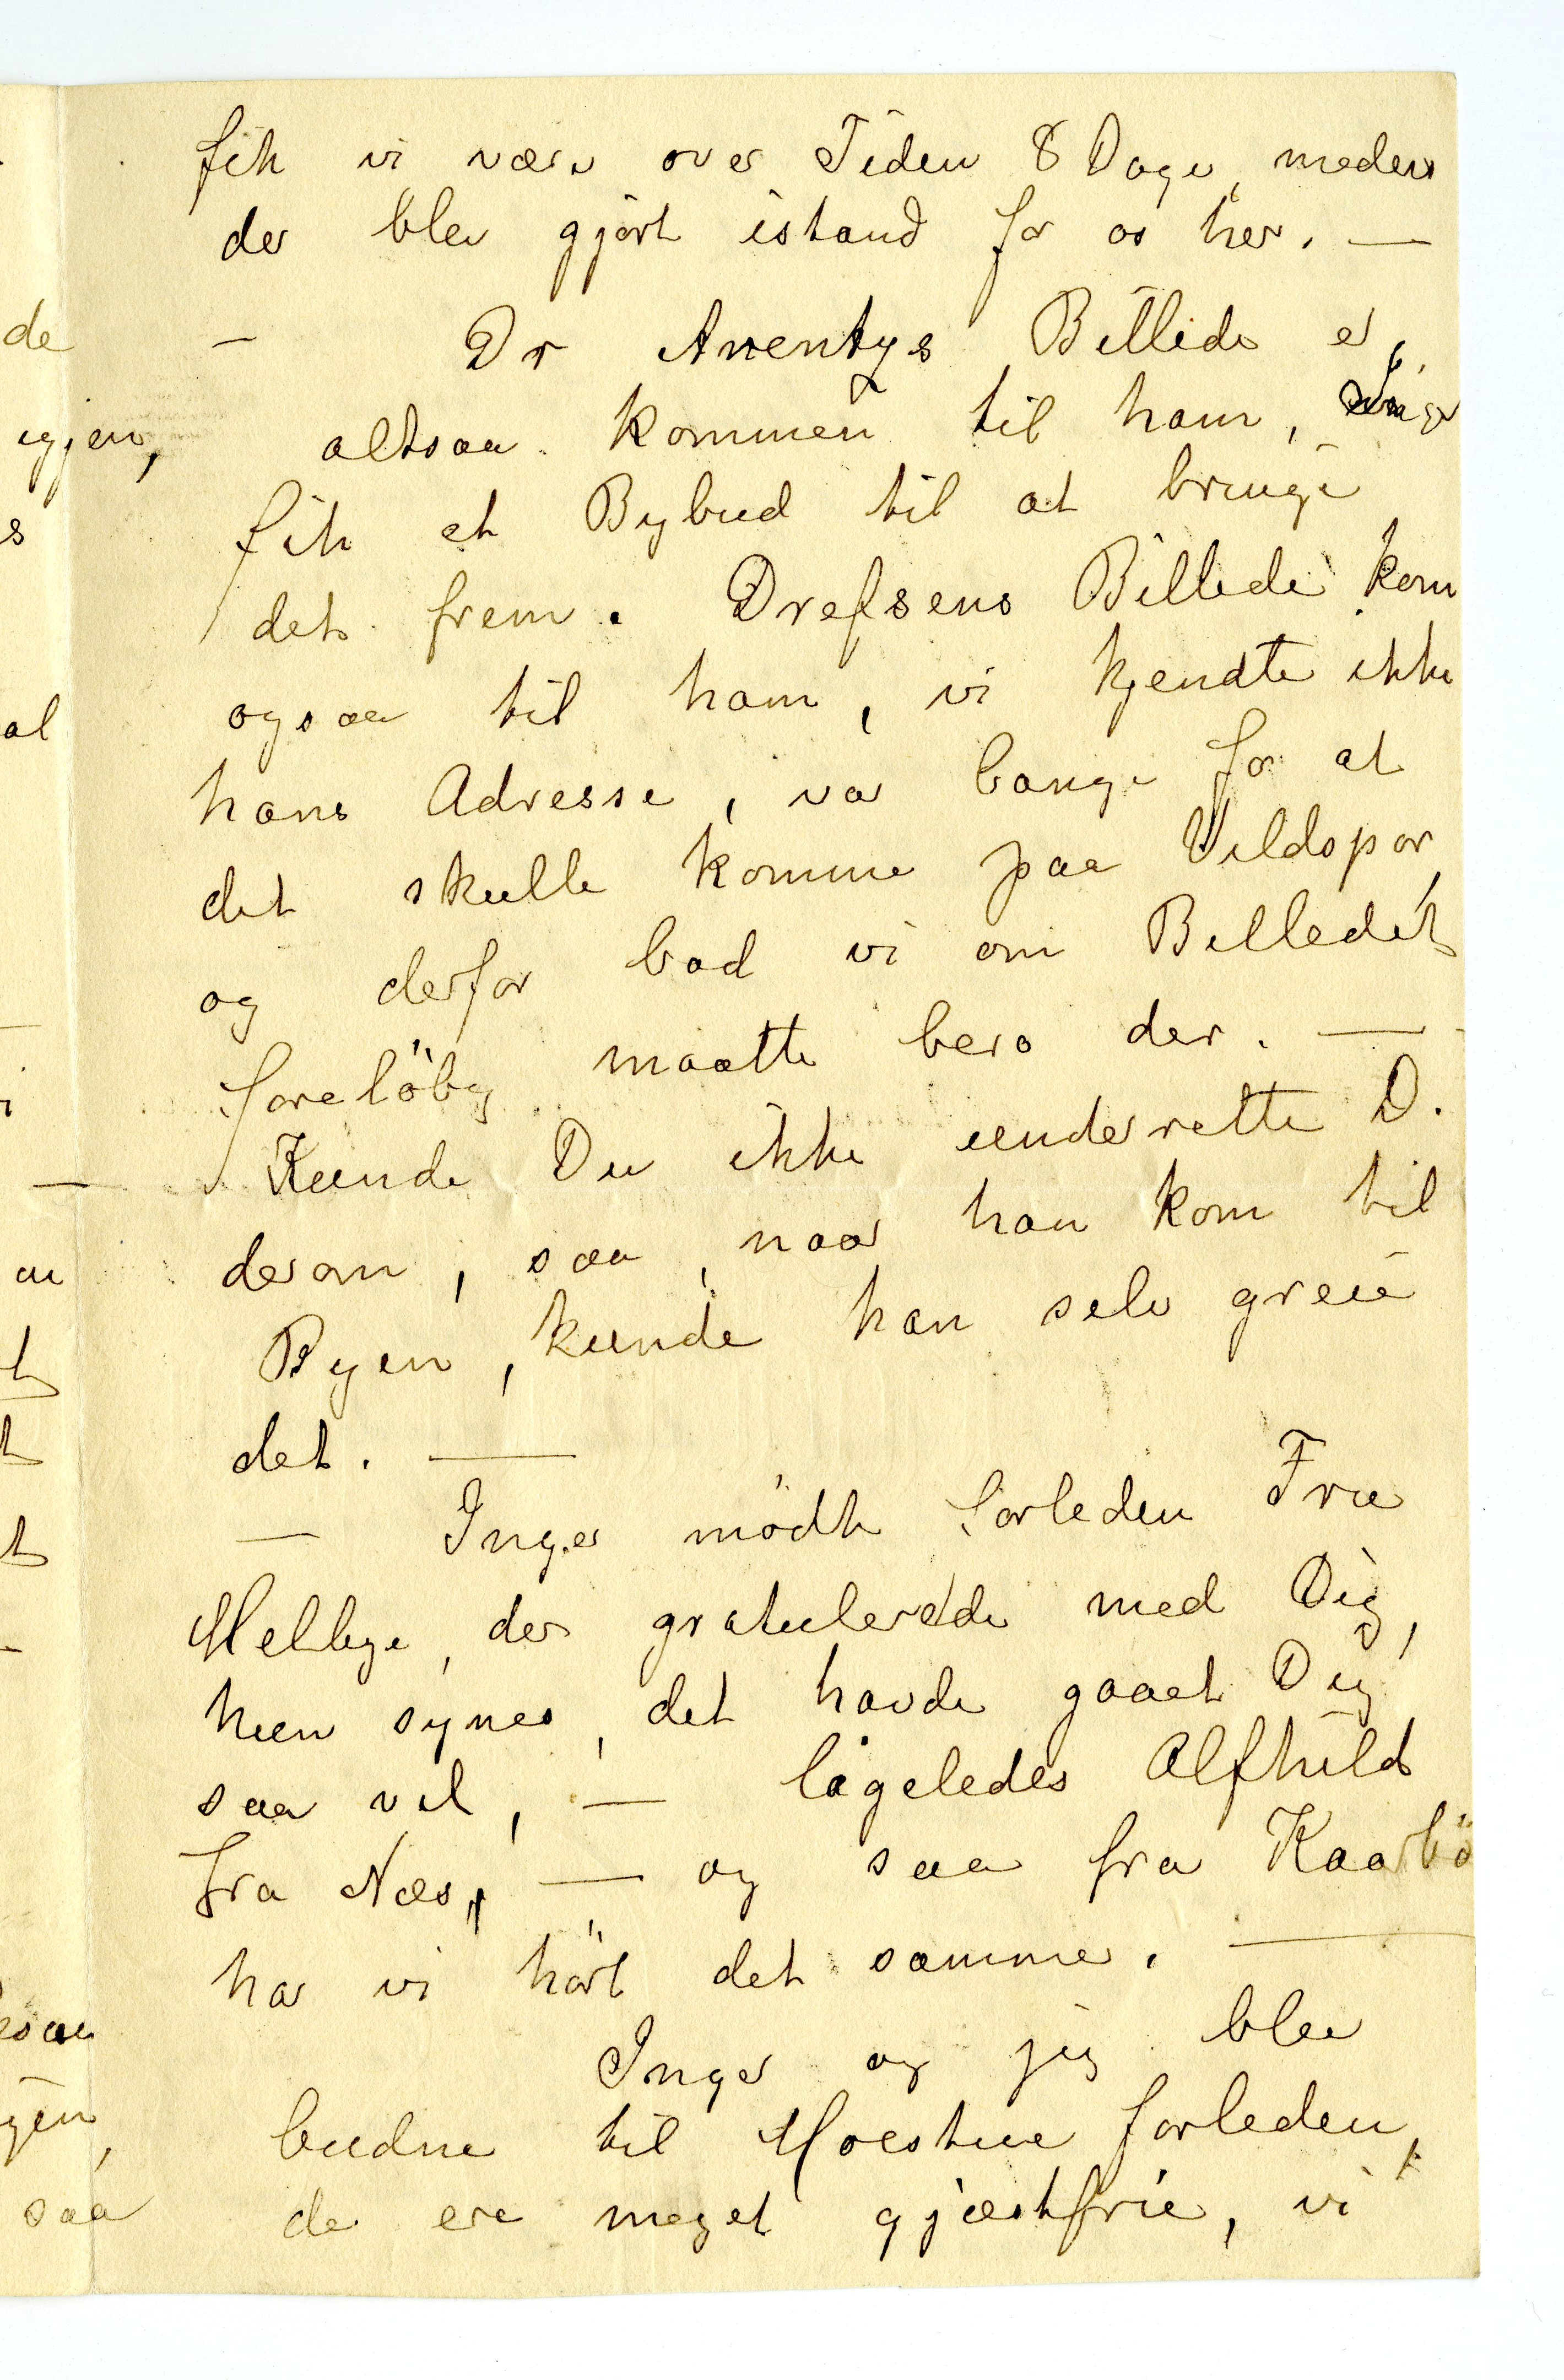 fik vi være over Tiden 8 Dage, medens
der blev gjort istand for os her. —
— Dr Arentz's Billede er,
altsaa kommen til ham, Inger
fik et Bybud til at bringe
det frem. Drefsens Billede kom
ogsaa til ham, vi kjendte ikke
hans Adresse, var bange for at
det skulle komme paa Vildspor,
og derfor bad vi om Billedet
foreløbig maatte bero der. —
Kunde Du ikke underrette D.
derom, saa, naar han kom til
Byen, kunde han selv greie
det. —
— Inger mödte forleden Frue
Mellbye, der gratulerede med Dig,
hun synes, det havde gaaet Dig
saa vel, — ligeledes Alfhild
fra Næs, — og saa fra Kaarbö
har vi hört det samme. —
Inger og jeg blev
budne til Moestue forleden,
de ere meget gjæstfrie, vi
de
igjen,
s
al
i
—
au
t
t
t
gen,
saa